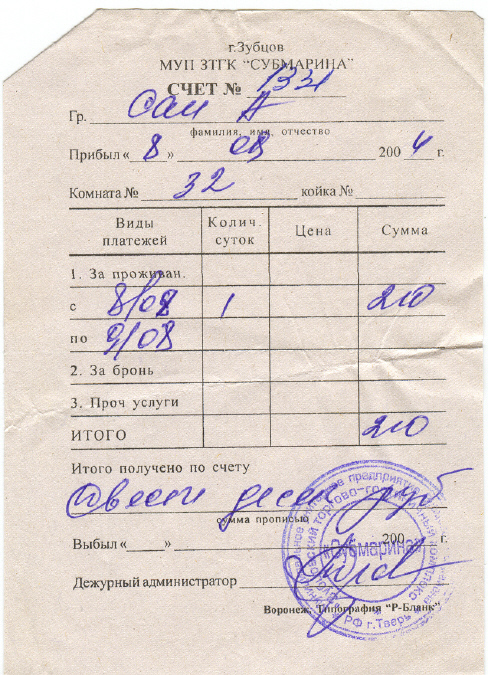 г.Зубцов
МУП ЗТГК “СУБМАРИНА”
СЧЕТ № 1331
Гр. Сан А
фамилия, имя, отчество
Прибыл « 8 » 08 2004 г.
Комната № 32 койка №
Виды платежей Колич. суток Цена Сумма
1. За проживан.
с 8/08 1 210
по 9/08
2. За бронь
3. Проч услуги
ИТОГО 210
Итого получено по счету
Двести десять руб
сумма прописью
Выбыл « » 200 г.
Дежурный администратор
Воронеж, Типография “Р-Бланк”
«Субмарина»
РФ г.Тверь